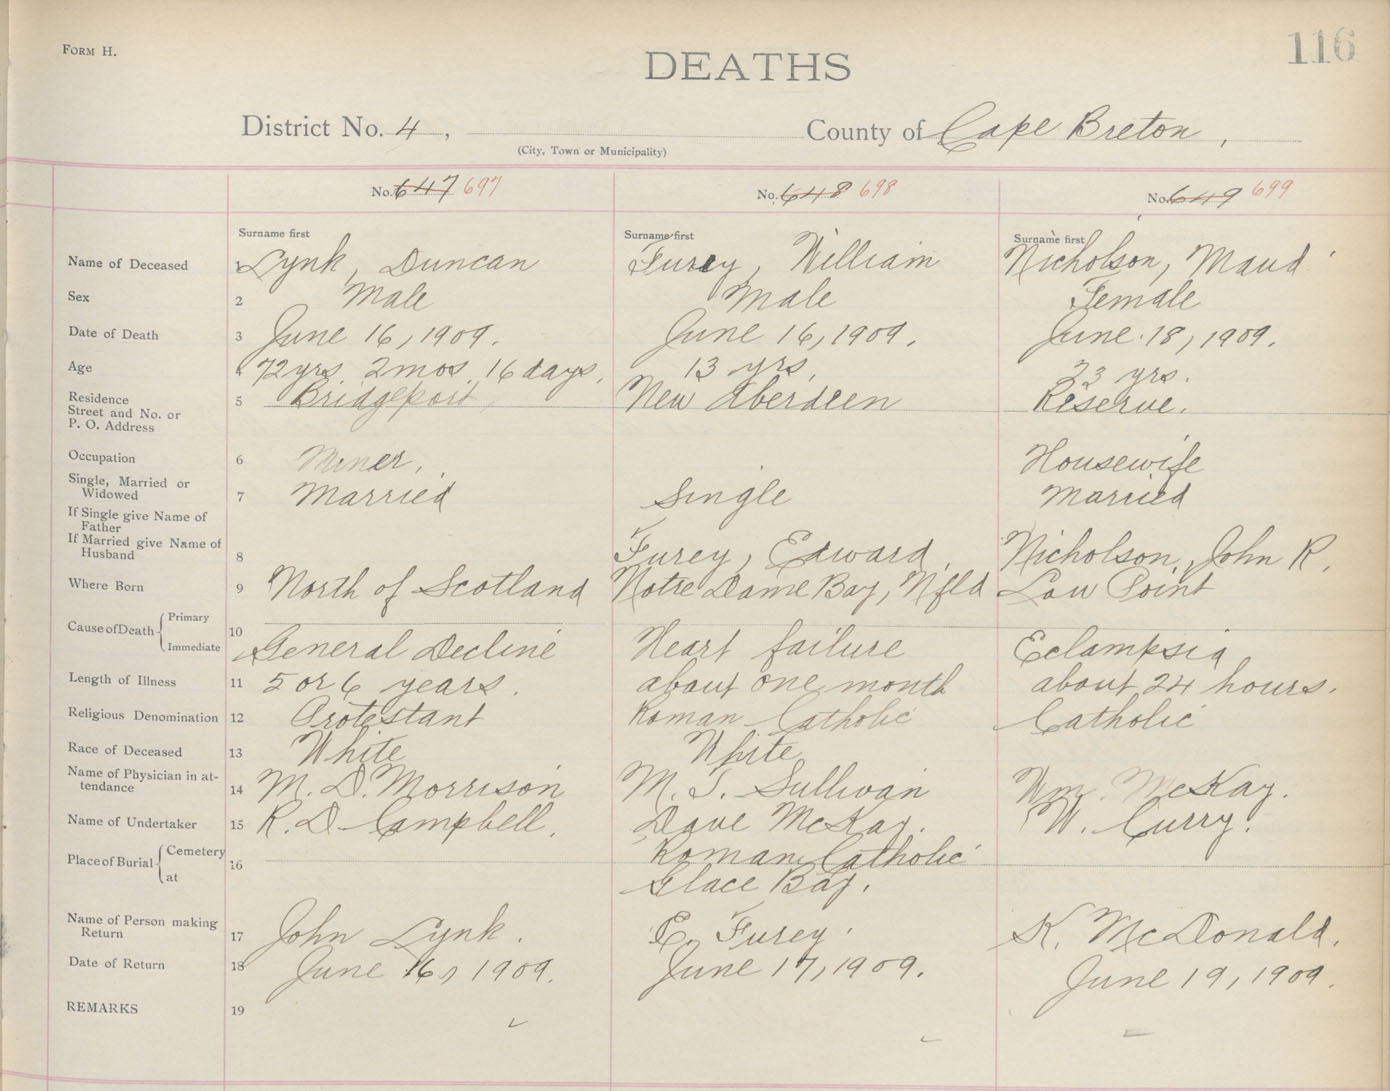 FORM H.
116
DEATHS
District No. 4, County of Cape Breton,
(City, Town or Municipality)
No. 647 697 No. 648 698 No. 649 699
Surname first Surname first Surname first
Name of Deceased 1 Lynk, Duncan Furey, William Nicholson, Maud
Sex 2 Male Male Female
Date of Death 3 June 16, 1909. June 16, 1909. June 18, 1909.
Age 4 72 yrs 2 mos 16 days. 13 yrs. 23 yrs.
Residence
Street and No. or
P. O. Address 5 Bridgeport, New Aberdeen Reserve.
Occupation 6 Miner, Housewife
Single, Married or
Widowed 7 Married Single Married
If Single give Name of
Father
If Married give Name of
Husband 8 Furey, Edward. Nicholson, John R.
Where Born 9 North of Scotland Notre Dame Bay, Nfld Low Point
Cause of Death Primary
Immediate 10 General Decline Heart failure Eclampsia
Length of Illness 11 5 or 6 years. about one month about 24 hours.
Religious Denomination 12 Protestant Roman Catholic Catholic
Race of Deceased 13 White White
Name of Physician in at-
tendance 14 M. D. Morrison M. T. Sullivan Wm. McKay.
Name of Undertaker 15 R. D. Campbell. Dave McKay. W. Curry.
Place of Burial Cemetery 16 Roman Catholic
at Glace Bay.
Name of Person making
Return 17 John Lynk. E. Furey. K. McDonald.
Date of Return 18 June 16, 1909. June 17, 1909. June 19, 1909.
REMARKS 19